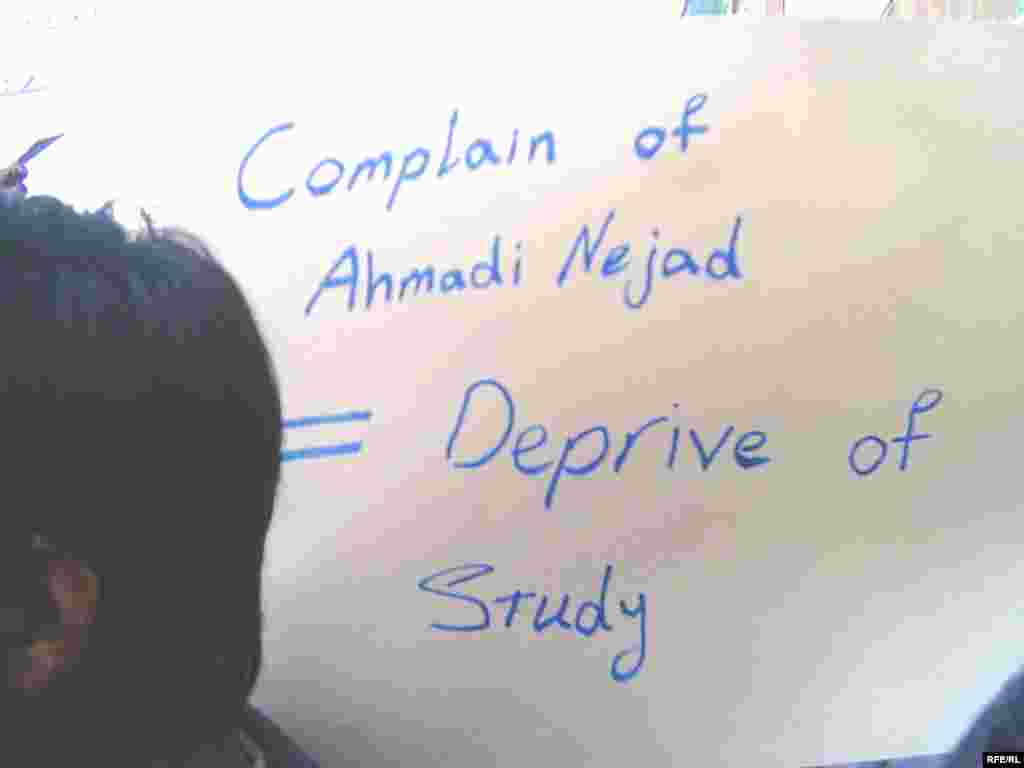 Complain of
Ahmadi Nejad
= Deprive of
Study
RFE/RL